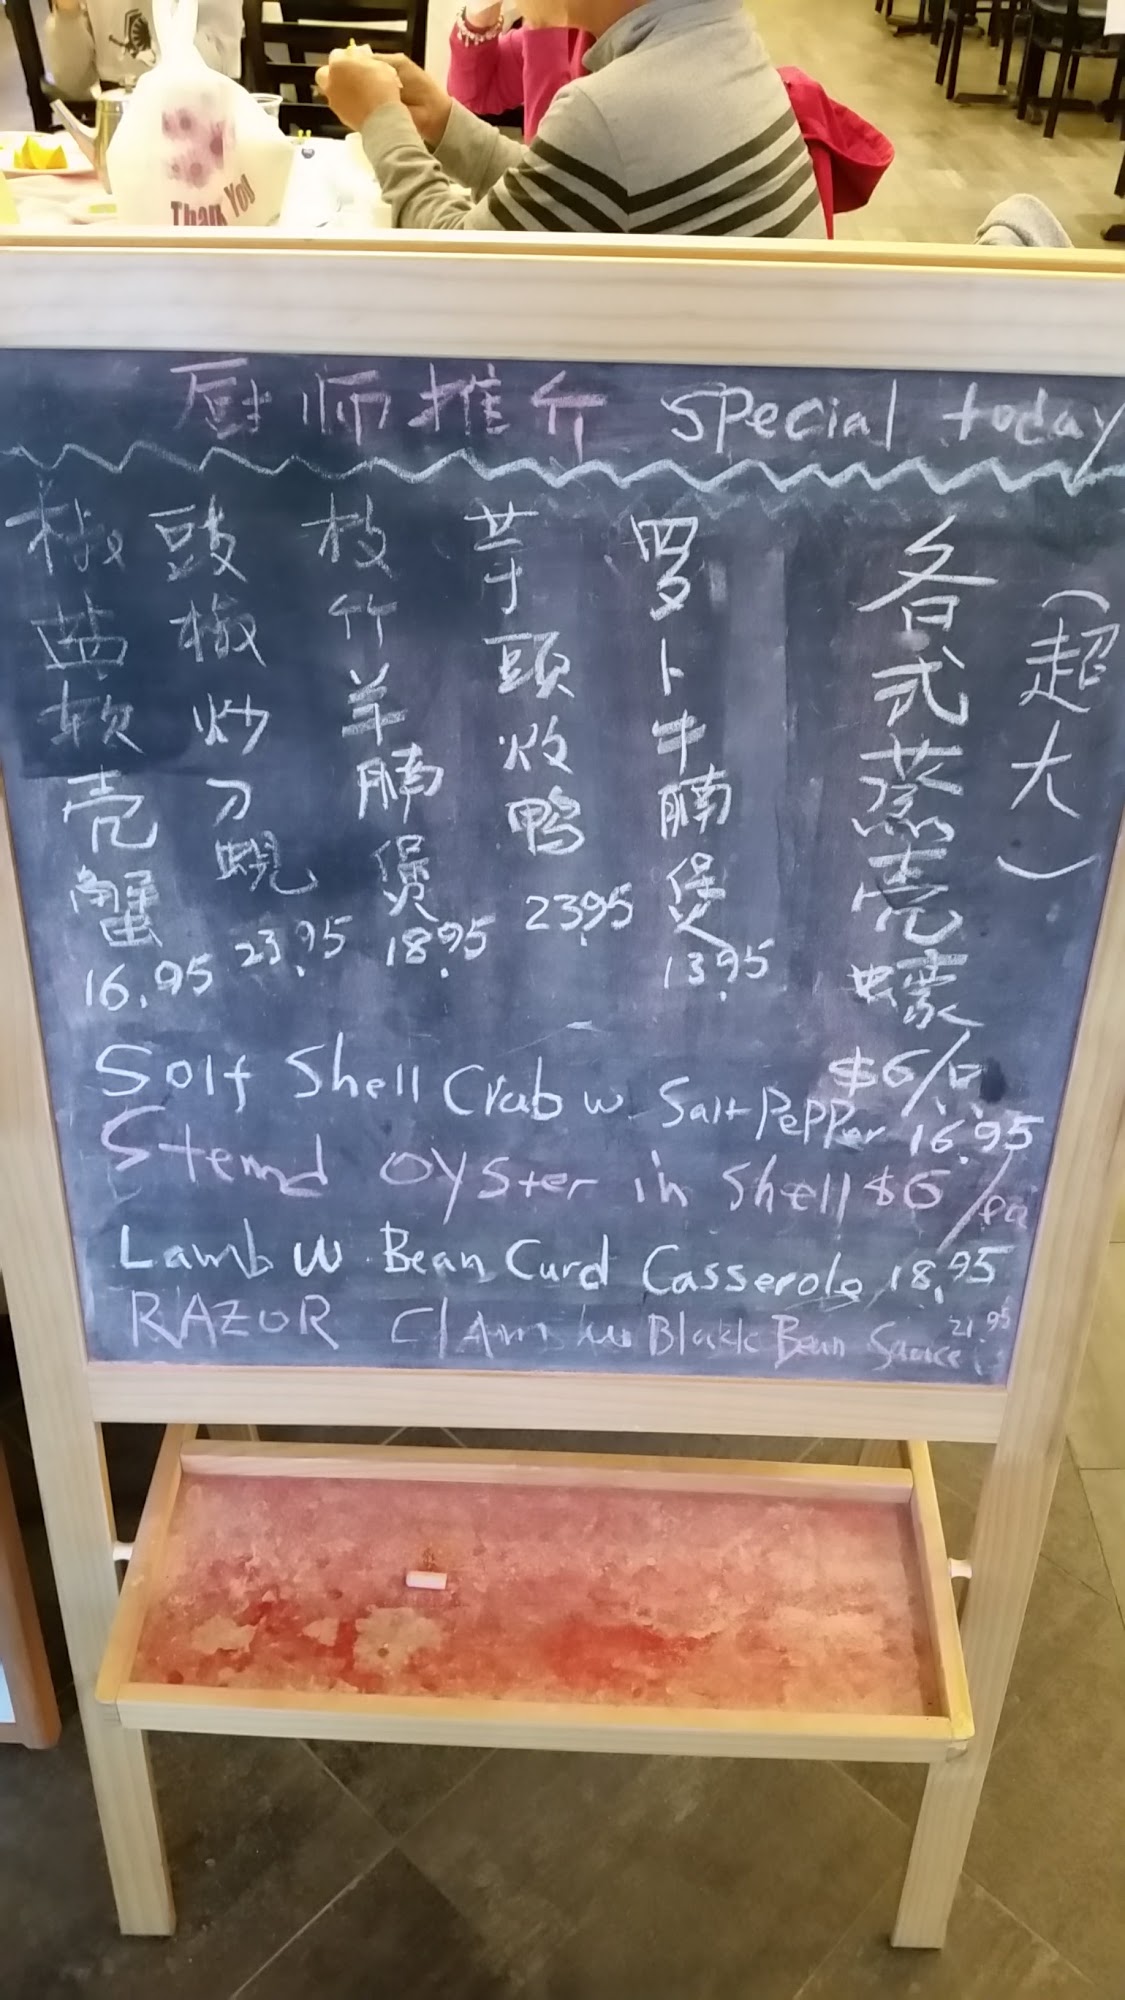 Thank You
厨师推介 special today
(超大)
各式蒸壳蠔
$6/只
罗卜牛腩煲
13.95
芋頭炆鴨
23.95
枝竹羊腩煲
18.95
豉椒炒刀蜆
23.95
椒盐软壳蟹
16.95
Solf Shell Crab w. Salt Pepper 16.95
Stemd oyster in Shell $6/ea
Lamb w Bean Curd Casserole 18.95
RAZOR Clam w Black Bean Sauce 21.95